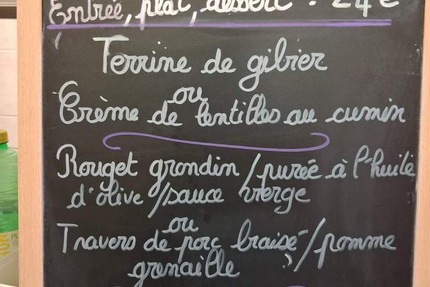 Entrée, plat, dessert : 24€
Terrine de gibier
ou
Crème de lentilles au cumin
Rouget grondin / purée à l'huile
d'olive / sauce vierge
ou
Travers de porc braisé / pomme
grenaille